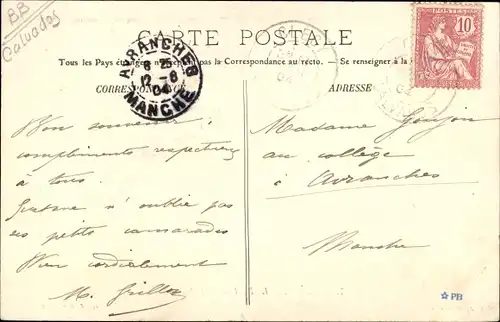 BB
Calvados
CARTE POSTALE
Tous les Pays étrangers n'acceptent pas la Correspondance au recto. — Se renseigner à la
CORRESPONDANCE
ADRESSE
AVRANCHES
8 25
12 -8
04
MANCHE
10
POSTES
Bon souvenir,
compliments respectueux
à tous.
n'oublie pas
ses petits camarades
Bien cordialement
M. Grillon
Madame Goujon
au collège
à Avranches
Manche
PB